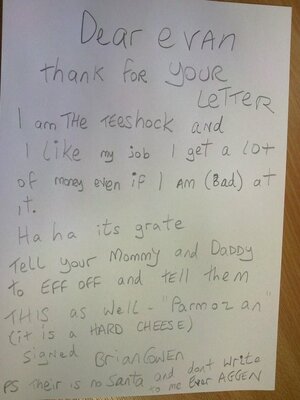 Dear evan
thank for your
Letter
I am THE TEESHOCK and
I Like my job I get a LOT
of money even if I AM (Bad) at
it.
Ha ha its grate
Tell your Mommy and Daddy
to EFF OFF and tell them
THIS as well - "Parmoz an"
(it is a HARD CHEESE)
Signed BrianCowen
PS Their is no Santa and dont write
to me Ever AGGEN